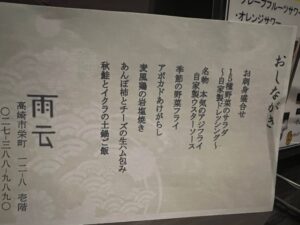 おしながき
お刺身盛合せ
15種野菜のサラダ
〜自家製ドレッシング〜
名物 本気のアジフライ
自家製ウスターソース
季節の野菜フライ
アボカドあげがらし
麦風鶏の岩塩焼き
あんぽ柿とチーズの生ハム包み
秋鮭とイクラの土鍋ご飯
雨云
高崎市栄町 一二ー八 壱階
〇二七ー三八八ー九八九〇
グレープフルーツサワー
・オレンジサワー